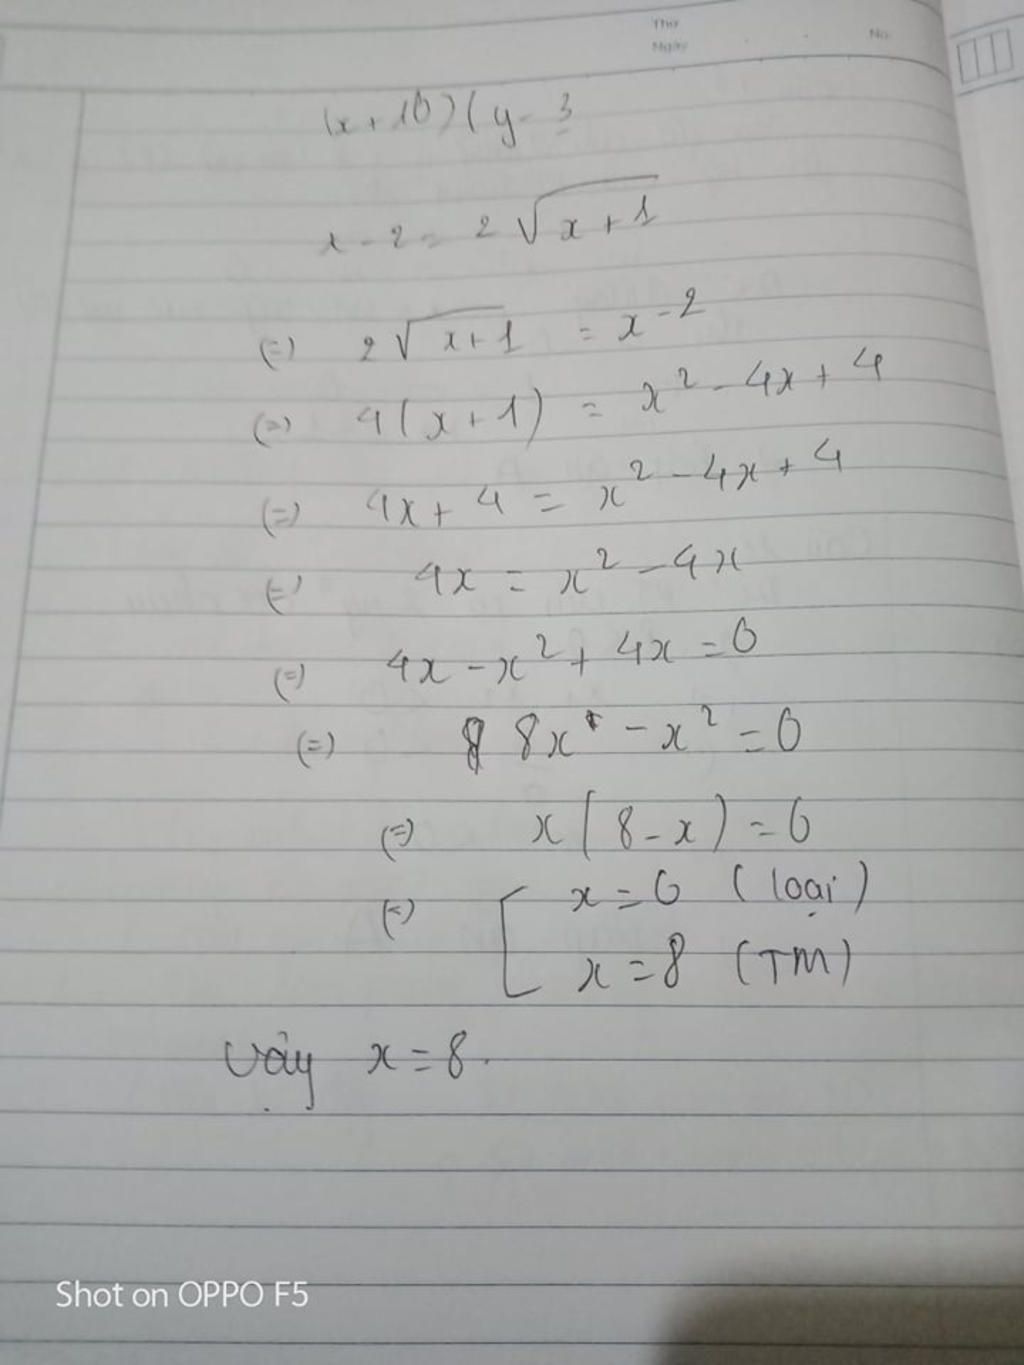 Thứ
Ngày
No
(x+10)(y-3
x-2 = 2√(x+1)
(=) 2√(x+1) = x-2
(=) 4(x+1) = x² - 4x + 4
(=) 4x + 4 = x² - 4x + 4
(=) 4x = x² - 4x
(=) 4x - x² + 4x = 0
(=) 8x - x² = 0
(=) x(8-x) = 0
(=) [ x = 0 (loại)
x = 8 (TM)
Vậy x = 8.
Shot on OPPO F5